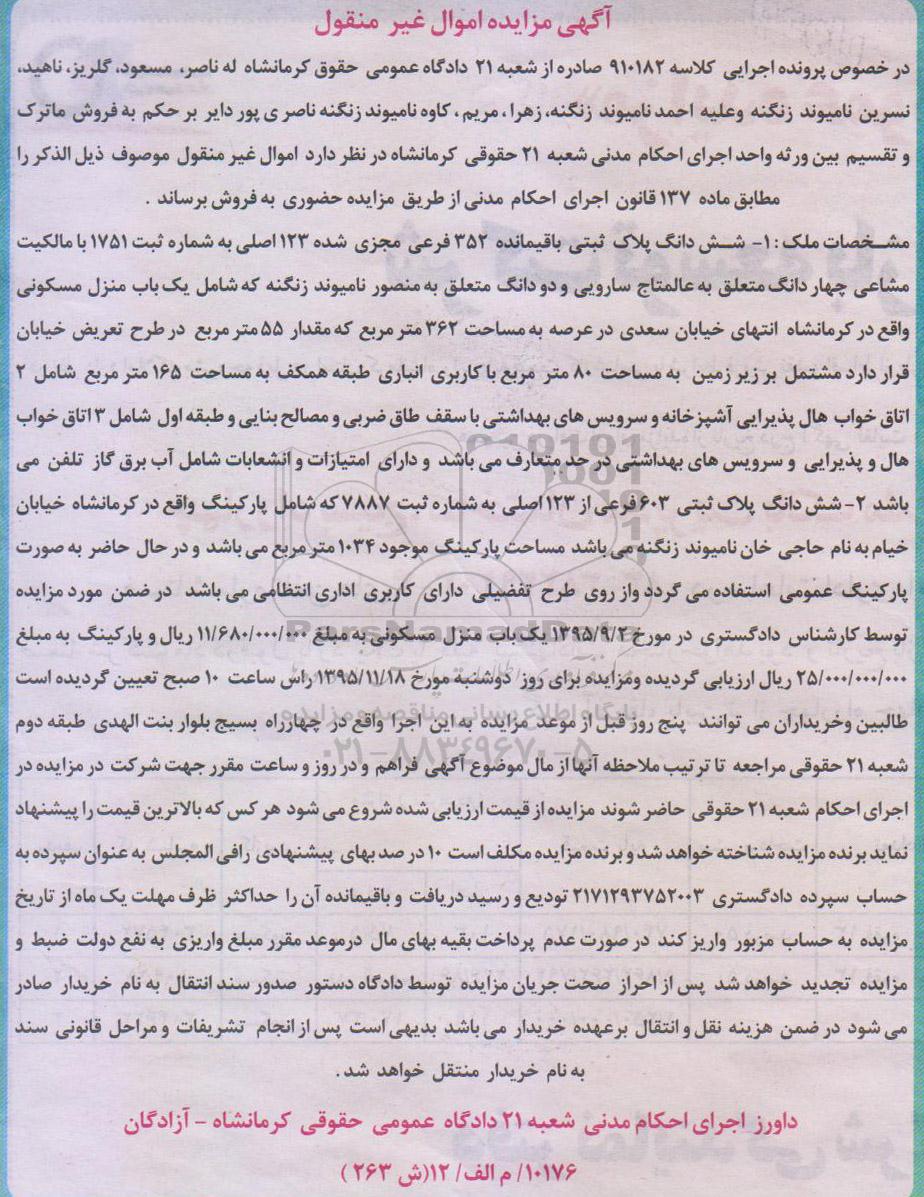 آگهی مزایده اموال غیر منقول
در خصوص پرونده اجرایی کلاسه ۹۱۰۱۸۲ صادره از شعبه ۲۱ دادگاه عمومی حقوق کرمانشاه له ناصر، مسعود، گلریز، ناهید،
نسرین نامیوند زنگنه وعلیه احمد نامیوند زنگنه، زهرا ، مریم ، کاوه نامیوند زنگنه ناصری پور دایر بر حکم به فروش ماترک
و تقسیم بین ورثه واحد اجرای احکام مدنی شعبه ۲۱ حقوقی کرمانشاه در نظر دارد اموال غیر منقول موصوف ذیل الذکر را
مطابق ماده ۱۳۷ قانون اجرای احکام مدنی از طریق مزایده حضوری به فروش برساند .
مشخصات ملک : ۱- شش دانگ پلاک ثبتی باقیمانده ۳۵۲ فرعی مجزی شده ۱۲۳ اصلی به شماره ثبت ۱۷۵۱ با مالکیت
مشاعی چهار دانگ متعلق به عالمتاج سارویی و دو دانگ متعلق به منصور نامیوند زنگنه که شامل یک باب منزل مسکونی
واقع در کرمانشاه انتهای خیابان سعدی در عرصه به مساحت ۳۶۲ متر مربع که مقدار ۵۵ متر مربع در طرح تعریض خیابان
قرار دارد مشتمل بر زیر زمین به مساحت ۸۰ متر مربع با کاربری انباری طبقه همکف به مساحت ۱۶۵ متر مربع شامل ۲
اتاق خواب هال پذیرایی آشپزخانه و سرویس های بهداشتی با سقف طاق ضربی و مصالح بنایی و طبقه اول شامل ۳ اتاق خواب
هال و پذیرایی و سرویس های بهداشتی در حد متعارف می باشد و دارای امتیازات و انشعابات شامل آب برق گاز تلفن می
باشد ۲- شش دانگ پلاک ثبتی ۶۰۳ فرعی از ۱۲۳ اصلی به شماره ثبت ۷۸۸۷ که شامل پارکینگ واقع در کرمانشاه خیابان
خیام به نام حاجی خان نامیوند زنگنه می باشد مساحت پارکینگ موجود ۱۰۳۴ متر مربع می باشد و در حال حاضر به صورت
پارکینگ عمومی استفاده می گردد واز روی طرح تفضیلی دارای کاربری اداری انتظامی می باشد در ضمن مورد مزایده
توسط کارشناس دادگستری در مورخ ۱۳۹۵/۹/۲ یک باب منزل مسکونی به مبلغ ۱۱/۶۸۰/۰۰۰/۰۰۰ ریال و پارکینگ به مبلغ
۲۵/۰۰۰/۰۰۰/۰۰۰ ریال ارزیابی گردیده ومزایده برای روز دوشنبه مورخ ۱۳۹۵/۱۱/۱۸ راس ساعت ۱۰ صبح تعیین گردیده است
طالبین وخریداران می توانند پنج روز قبل از موعد مزایده به این اجرا واقع در چهارراه بسیج بلوار بنت الهدی طبقه دوم
شعبه ۲۱ حقوقی مراجعه تا ترتیب ملاحظه آنها از مال موضوع آگهی فراهم و در روز و ساعت مقرر جهت شرکت در مزایده در
اجرای احکام شعبه ۲۱ حقوقی حاضر شوند مزایده از قیمت ارزیابی شده شروع می شود هر کس که بالاترین قیمت را پیشنهاد
نماید برنده مزایده شناخته خواهد شد و برنده مزایده مکلف است ۱۰ در صد بهای پیشنهادی رافی المجلس به عنوان سپرده به
حساب سپرده دادگستری ۲۱۷۱۲۹۳۷۵۲۰۰۳ تودیع و رسید دریافت و باقیمانده آن را حداکثر ظرف مهلت یک ماه از تاریخ
مزایده به حساب مزبور واریز کند در صورت عدم پرداخت بقیه بهای مال درموعد مقرر مبلغ واریزی به نفع دولت ضبط و
مزایده تجدید خواهد شد پس از احراز صحت جریان مزایده توسط دادگاه دستور صدور سند انتقال به نام خریدار صادر
می شود در ضمن هزینه نقل و انتقال برعهده خریدار می باشد بدیهی است پس از انجام تشریفات و مراحل قانونی سند
به نام خریدار منتقل خواهد شد .
داورز اجرای احکام مدنی شعبه ۲۱ دادگاه عمومی حقوقی کرمانشاه - آزادگان
۱۰۱۷۶/ م الف/ ۱۲(ش ۲۶۳ )
ParsNamadData
پایگاه اطلاع رسانی مناقصه و مزایده
۰۲۱-۸۸۳۴۹۶۷۰-۵